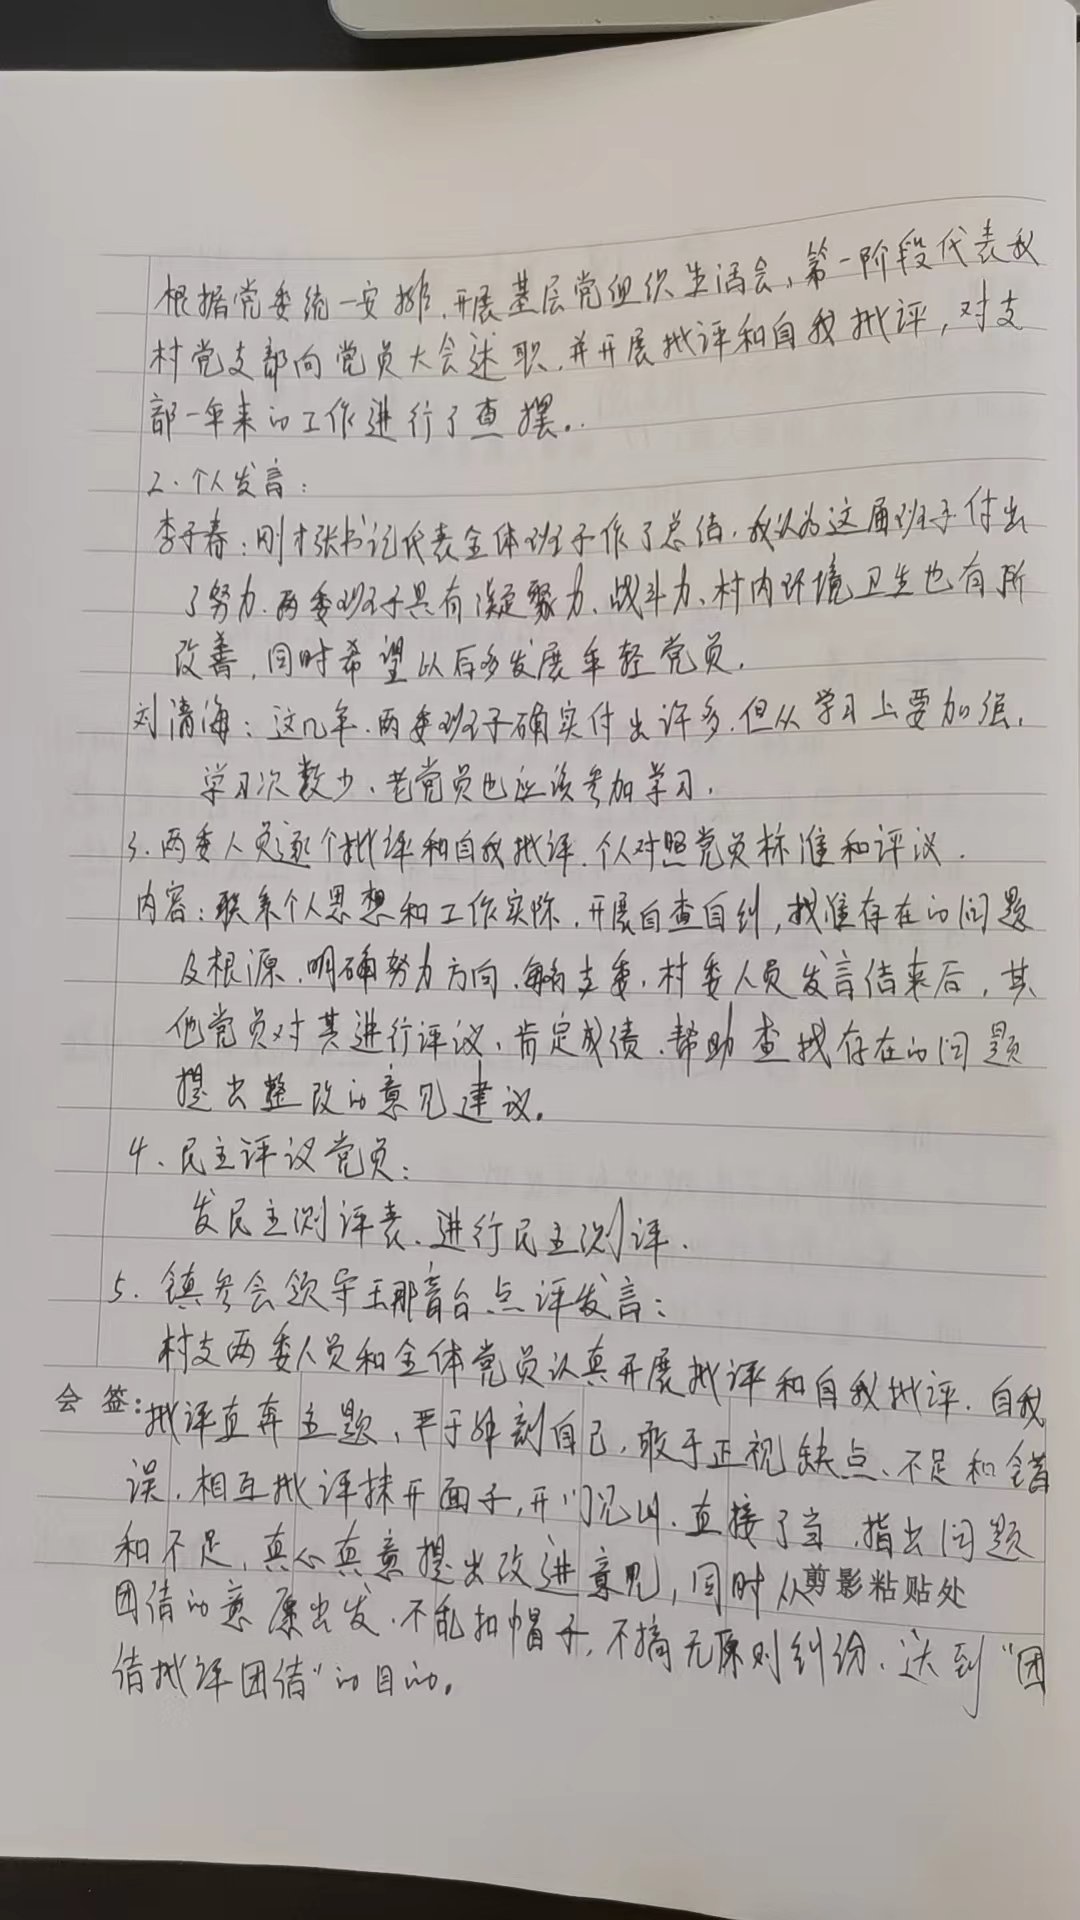 根据党委统一安排,开展基层党组织生活会,第一阶段代表我
村党支部向党员大会述职,并开展批评和自我批评,对支
部一年来的工作进行了查摆。
2.个人发言:
李子春:刚才张书记代表全体班子作了总结,我认为这届班子付出
了努力.两委班子具有凝聚力、战斗力、村内环境卫生也有所
改善,同时希望以后多发展年轻党员.
刘清海:这几年.两委班子确实付出许多.但从学习上要加强.
学习次数少、老党员也应该参加学习.
3.两委人员逐个批评和自我批评.个人对照党员标准和评议.
内容:联系个人思想和工作实际.开展自查自纠,找准存在的问题
及根源.明确努力方向.每名支委.村委人员发言结束后,其
他党员对其进行评议、肯定成绩.帮助查找存在的问题
提出整改的意见建议。
4、民主评议党员:
发民主测评表、进行民主测评.
5.镇参会领导王那音台点评发言:
村支两委人员和全体党员认真开展批评和自我批评.自我
会 签:
批评直奔主题,严于解剖自己,敢于正视缺点、不足和错
误.相互批评抹开面子,开门见山.直接了当.指出问题
和不足,真心真意提出改进意见,同时从
剪影粘贴处
团结的意愿出发.不乱扣帽子,不搞无原则纠纷、达到“团
结批评团结”的目的。